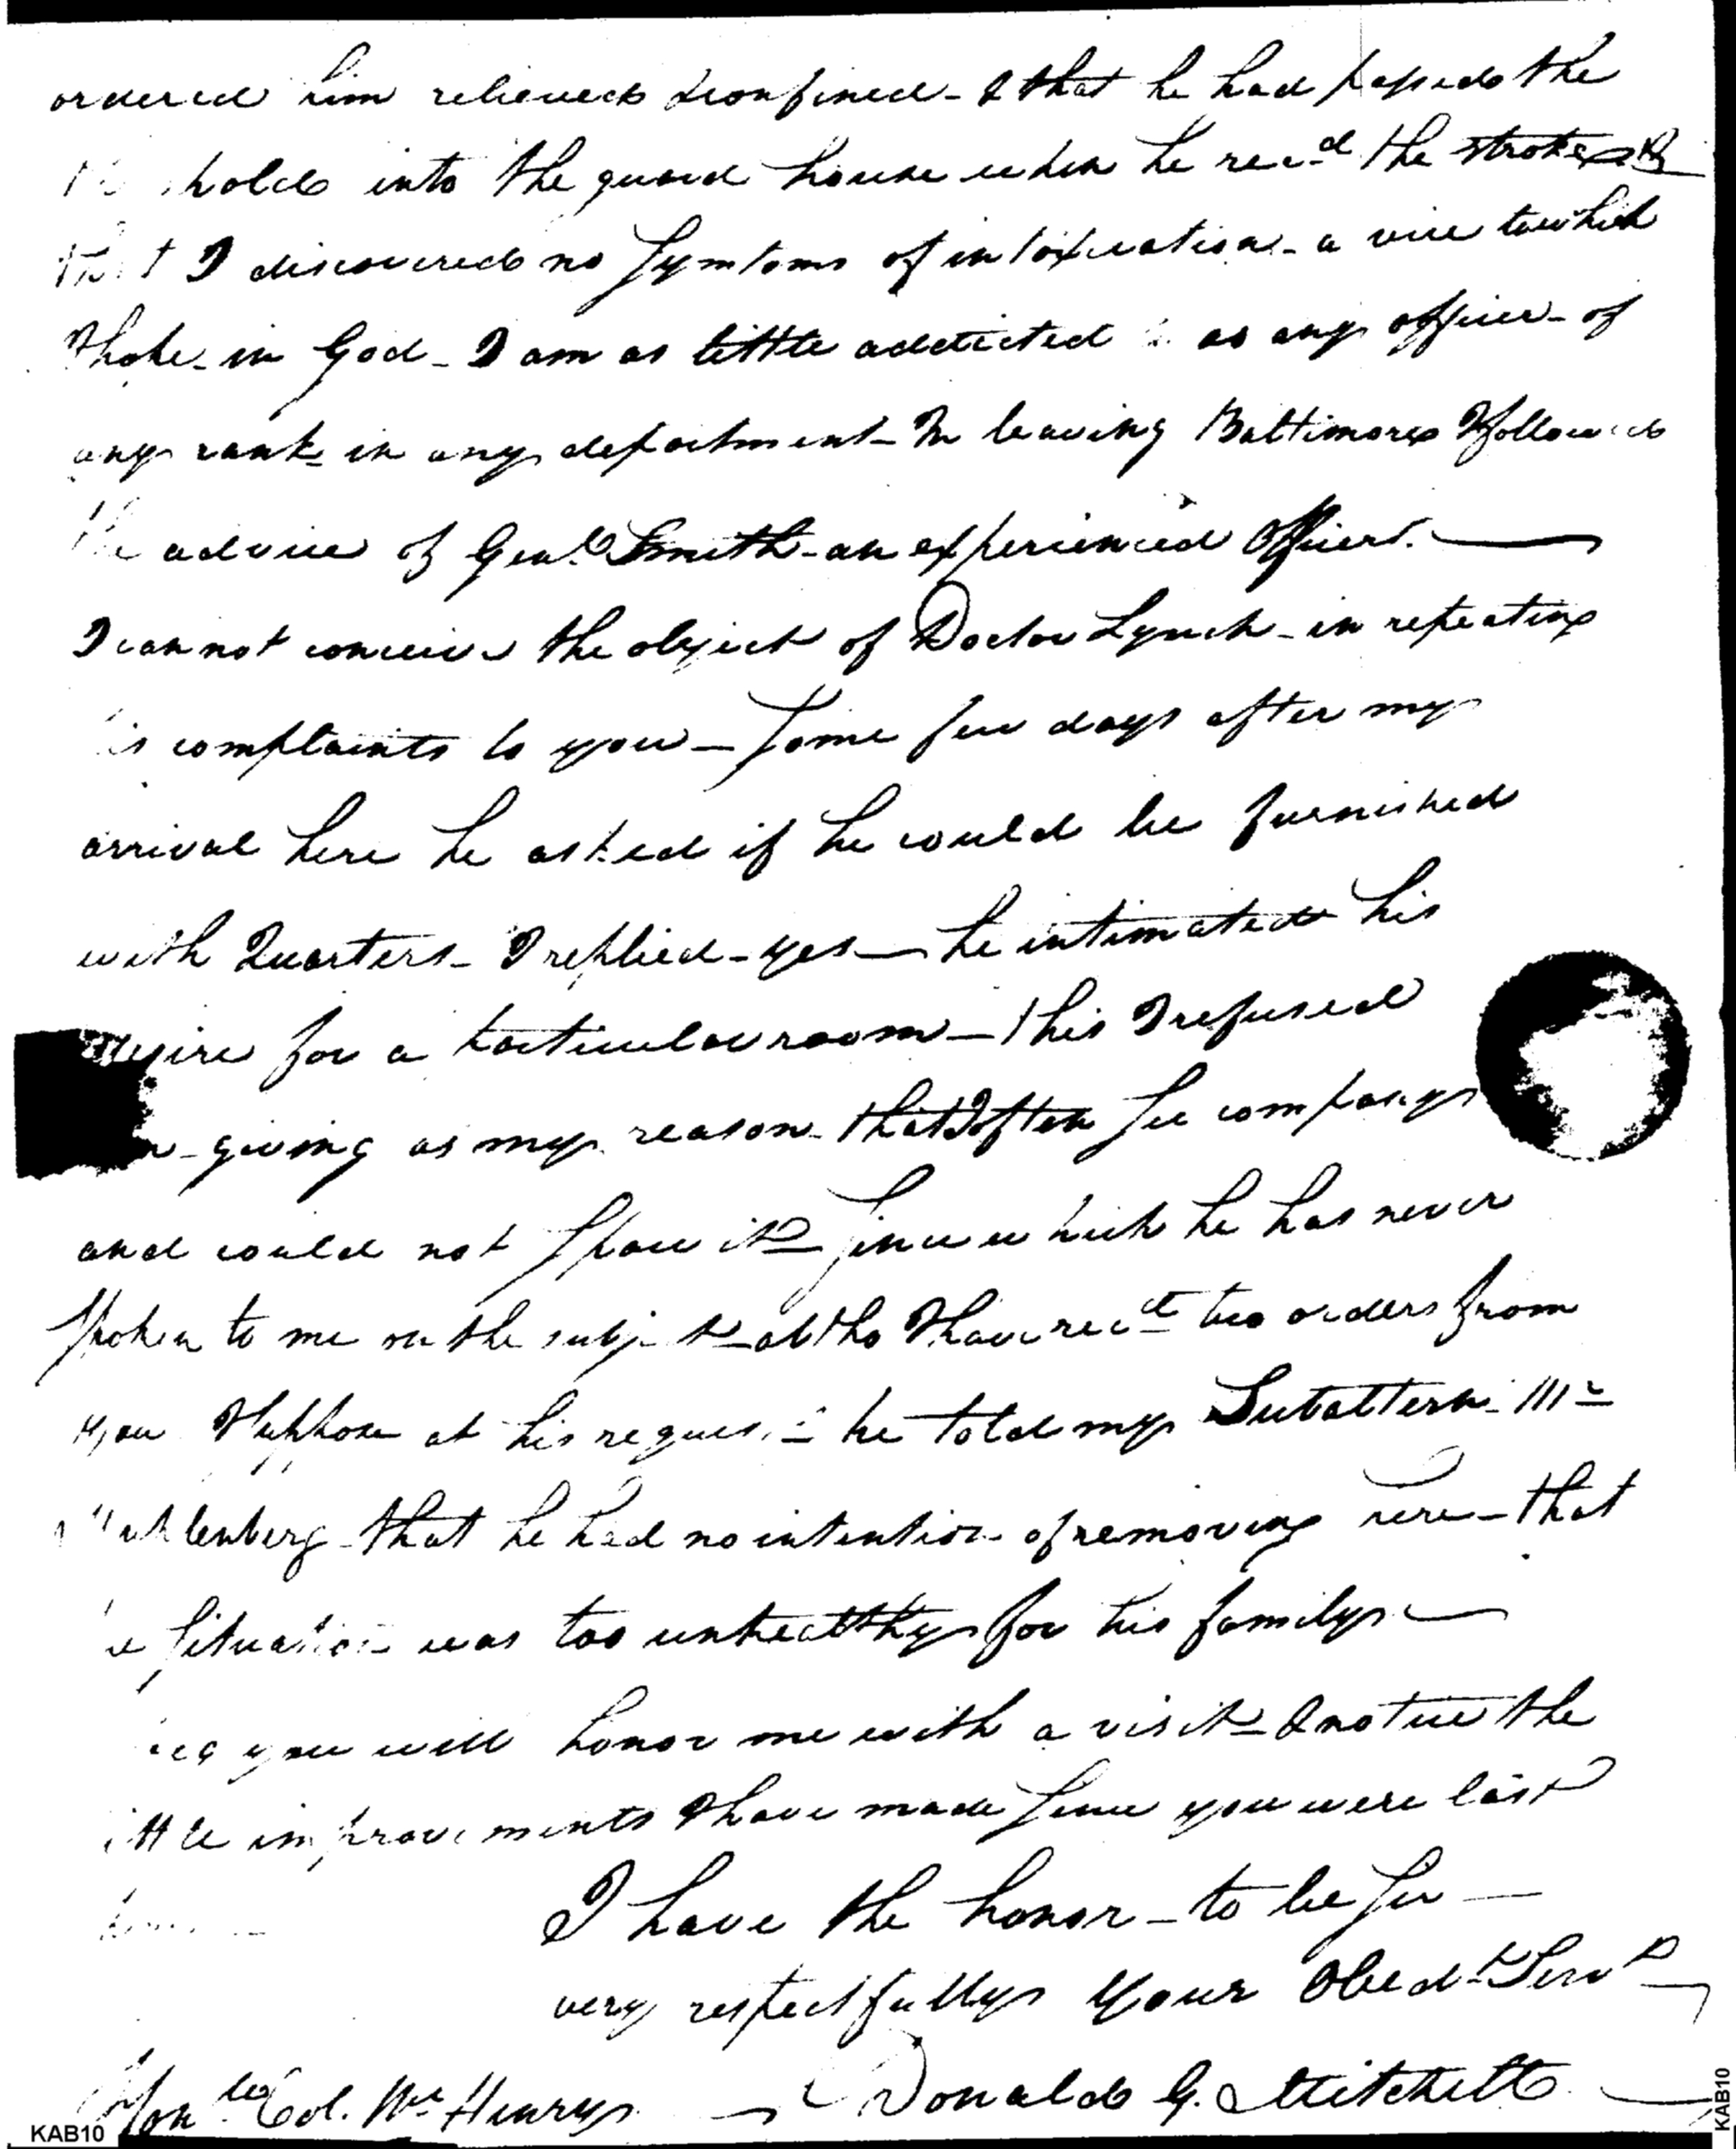 ordered him relieved & confined - & that he had passed the
hold into the guard house when he recd the stroke &
that I discovered no Symtoms of intoxication - a vice to which
I hope - in God - I am as little addicted as any officer - of
any rank - in any department - In leaving Baltimore I followed
the advice of Genl. Smith - an experienced Officer. —
I cannot conceive the object of Doctor Lynch - in repeating
his complaints to you — Some few days after my
arrival here he asked if he could be furnished
with Quarters - I replied - yes — he intimated his
desire for a particular room — this I refused
giving as my reason - that I often See company
and could not Spare it - Since which he has never
Spoken to me on the subject - altho I have recd two orders from
you I suppose at his request - he told my Subaltern - Mr
Muhlenberg - that he had no intention - of removing here - that
the Situation was too unhealthy for his family —
you will honor me with a visit - & notice the
little improvements I have made Since you were last
here —
I have the honor - to be Sir —
very respectfully Your Obedt Servt
Honble Col. Mc Henry — Donald G. Mitchell
KAB10
KAB10